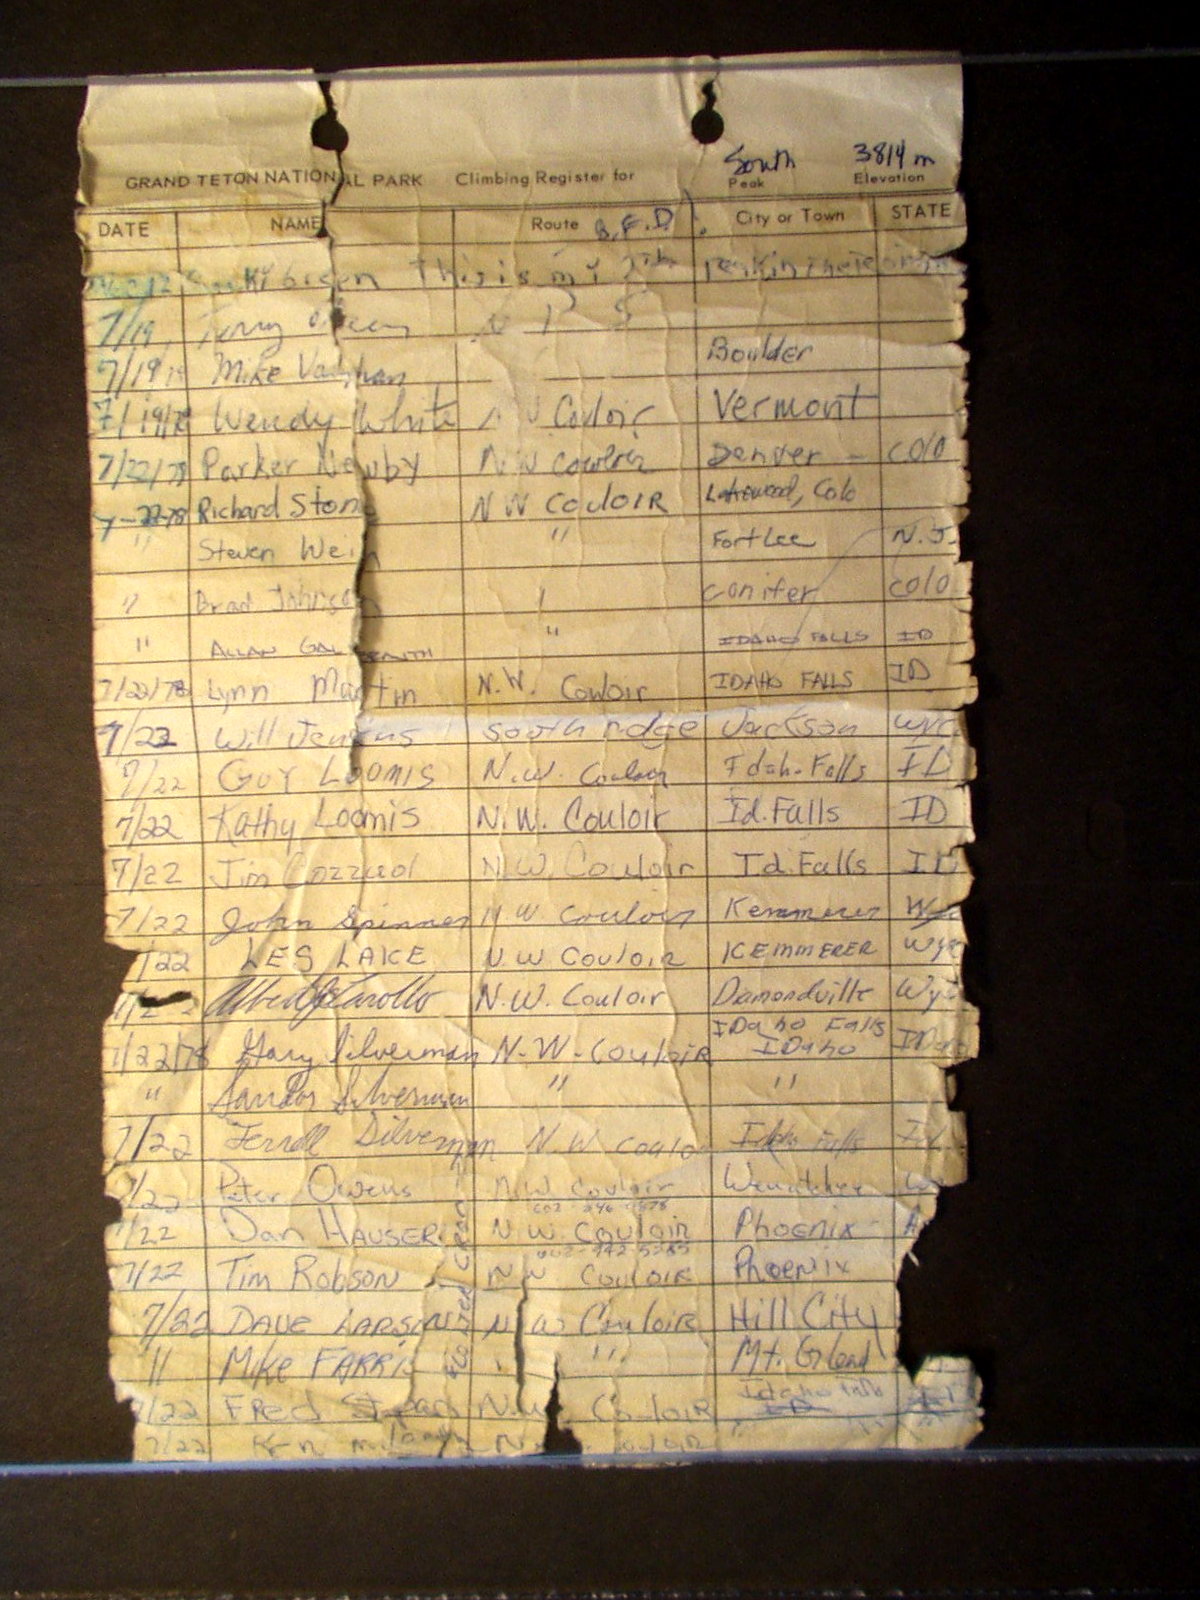 South 3814 m
GRAND TETON NATIONAL PARK Climbing Register for Peak Elevation
DATE NAME Route B.F.D. City or Town STATE
This is my
7/19 Terry
7/19 Mike Vaughan Boulder
7/19/78 Wendy White N W Couloir Vermont
7/22/78 Parker Newby N W Couloir Denver - Colo
7-22-78 Richard Stone N W COULOIR Lakewood, Colo
" Steven Wein " Fort Lee N.J.
" Brad Johnson " Conifer Colo
" ALLAN GALBRAITH " IDAHO FALLS ID
7/22/78 Lynn Martin N.W. Couloir IDAHO FALLS ID
7/22 Will Jenkins South ridge Jackson Wyo
7/22 GUY LOOMIS N.W. Couloir Idaho Falls ID
7/22 Kathy Loomis N.W. Couloir Id. Falls ID
7/22 Jim Cozzuol N.W. Couloir Id. Falls ID
7/22 John Spinner N.W Couloir Kemmerer Wyo
/22 LES LAKE N.W COULOIR KEMMERER Wyo
7/22 Albert J Carollo N.W. Couloir Diamondville Wyo
7/22/78 Gary Silverman N.W. COULOIR IDaho Falls IDaho IDaho
" Sandor Silverman " "
7/22 Terrell Silverman N.W Couloir Idaho Falls Id.
/22 Peter Owens N.W Couloir Wenatchee
7/22 Dan HAUSER N.W. Couloir Phoenix A
7/22 Tim Robson N W COULOIR Phoenix
7/22 DAVE LARSON N W COULOIR Hill City
" MIKE FARRIS " Mt.
7/22 FRED N.W. COULOIR Idaho Falls
7/22 Ken